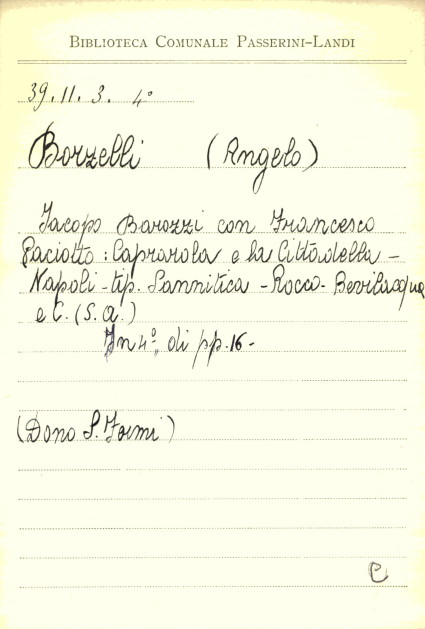 BIBLIOTECA COMUNALE PASSERINI-LANDI
39.11.3. 4°
Borzelli (Angelo)
Jacopo Barozzi con Francesco
Paciotto: Caprarola e la Cittadella -
Napoli - tip. Sannitica - Rocco - Bevilacqua
e C. (S. a.)
In 4°, di pp. 16 -
(Dono S. Fermi)
C